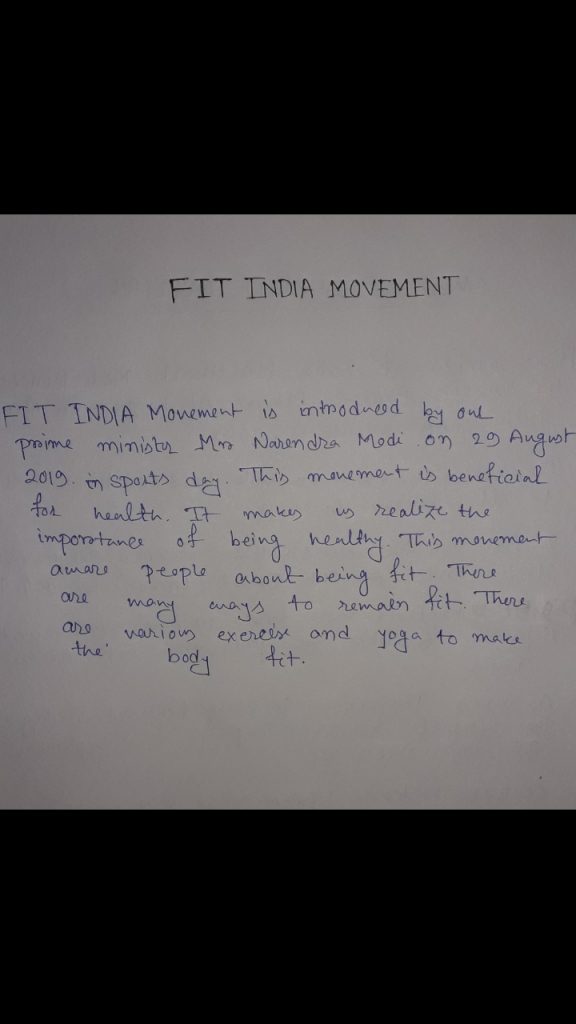 FIT INDIA MOVEMENT
FIT INDIA Movement is introduced by our
prime minister Mr Narendra Modi on 29 August
2019. in sports day. This movement is beneficial
for health. It makes us realize the
importance of being healthy. This movement
aware people about being fit. There
are many ways to remain fit. There
are various exercise and yoga to make
the body fit.